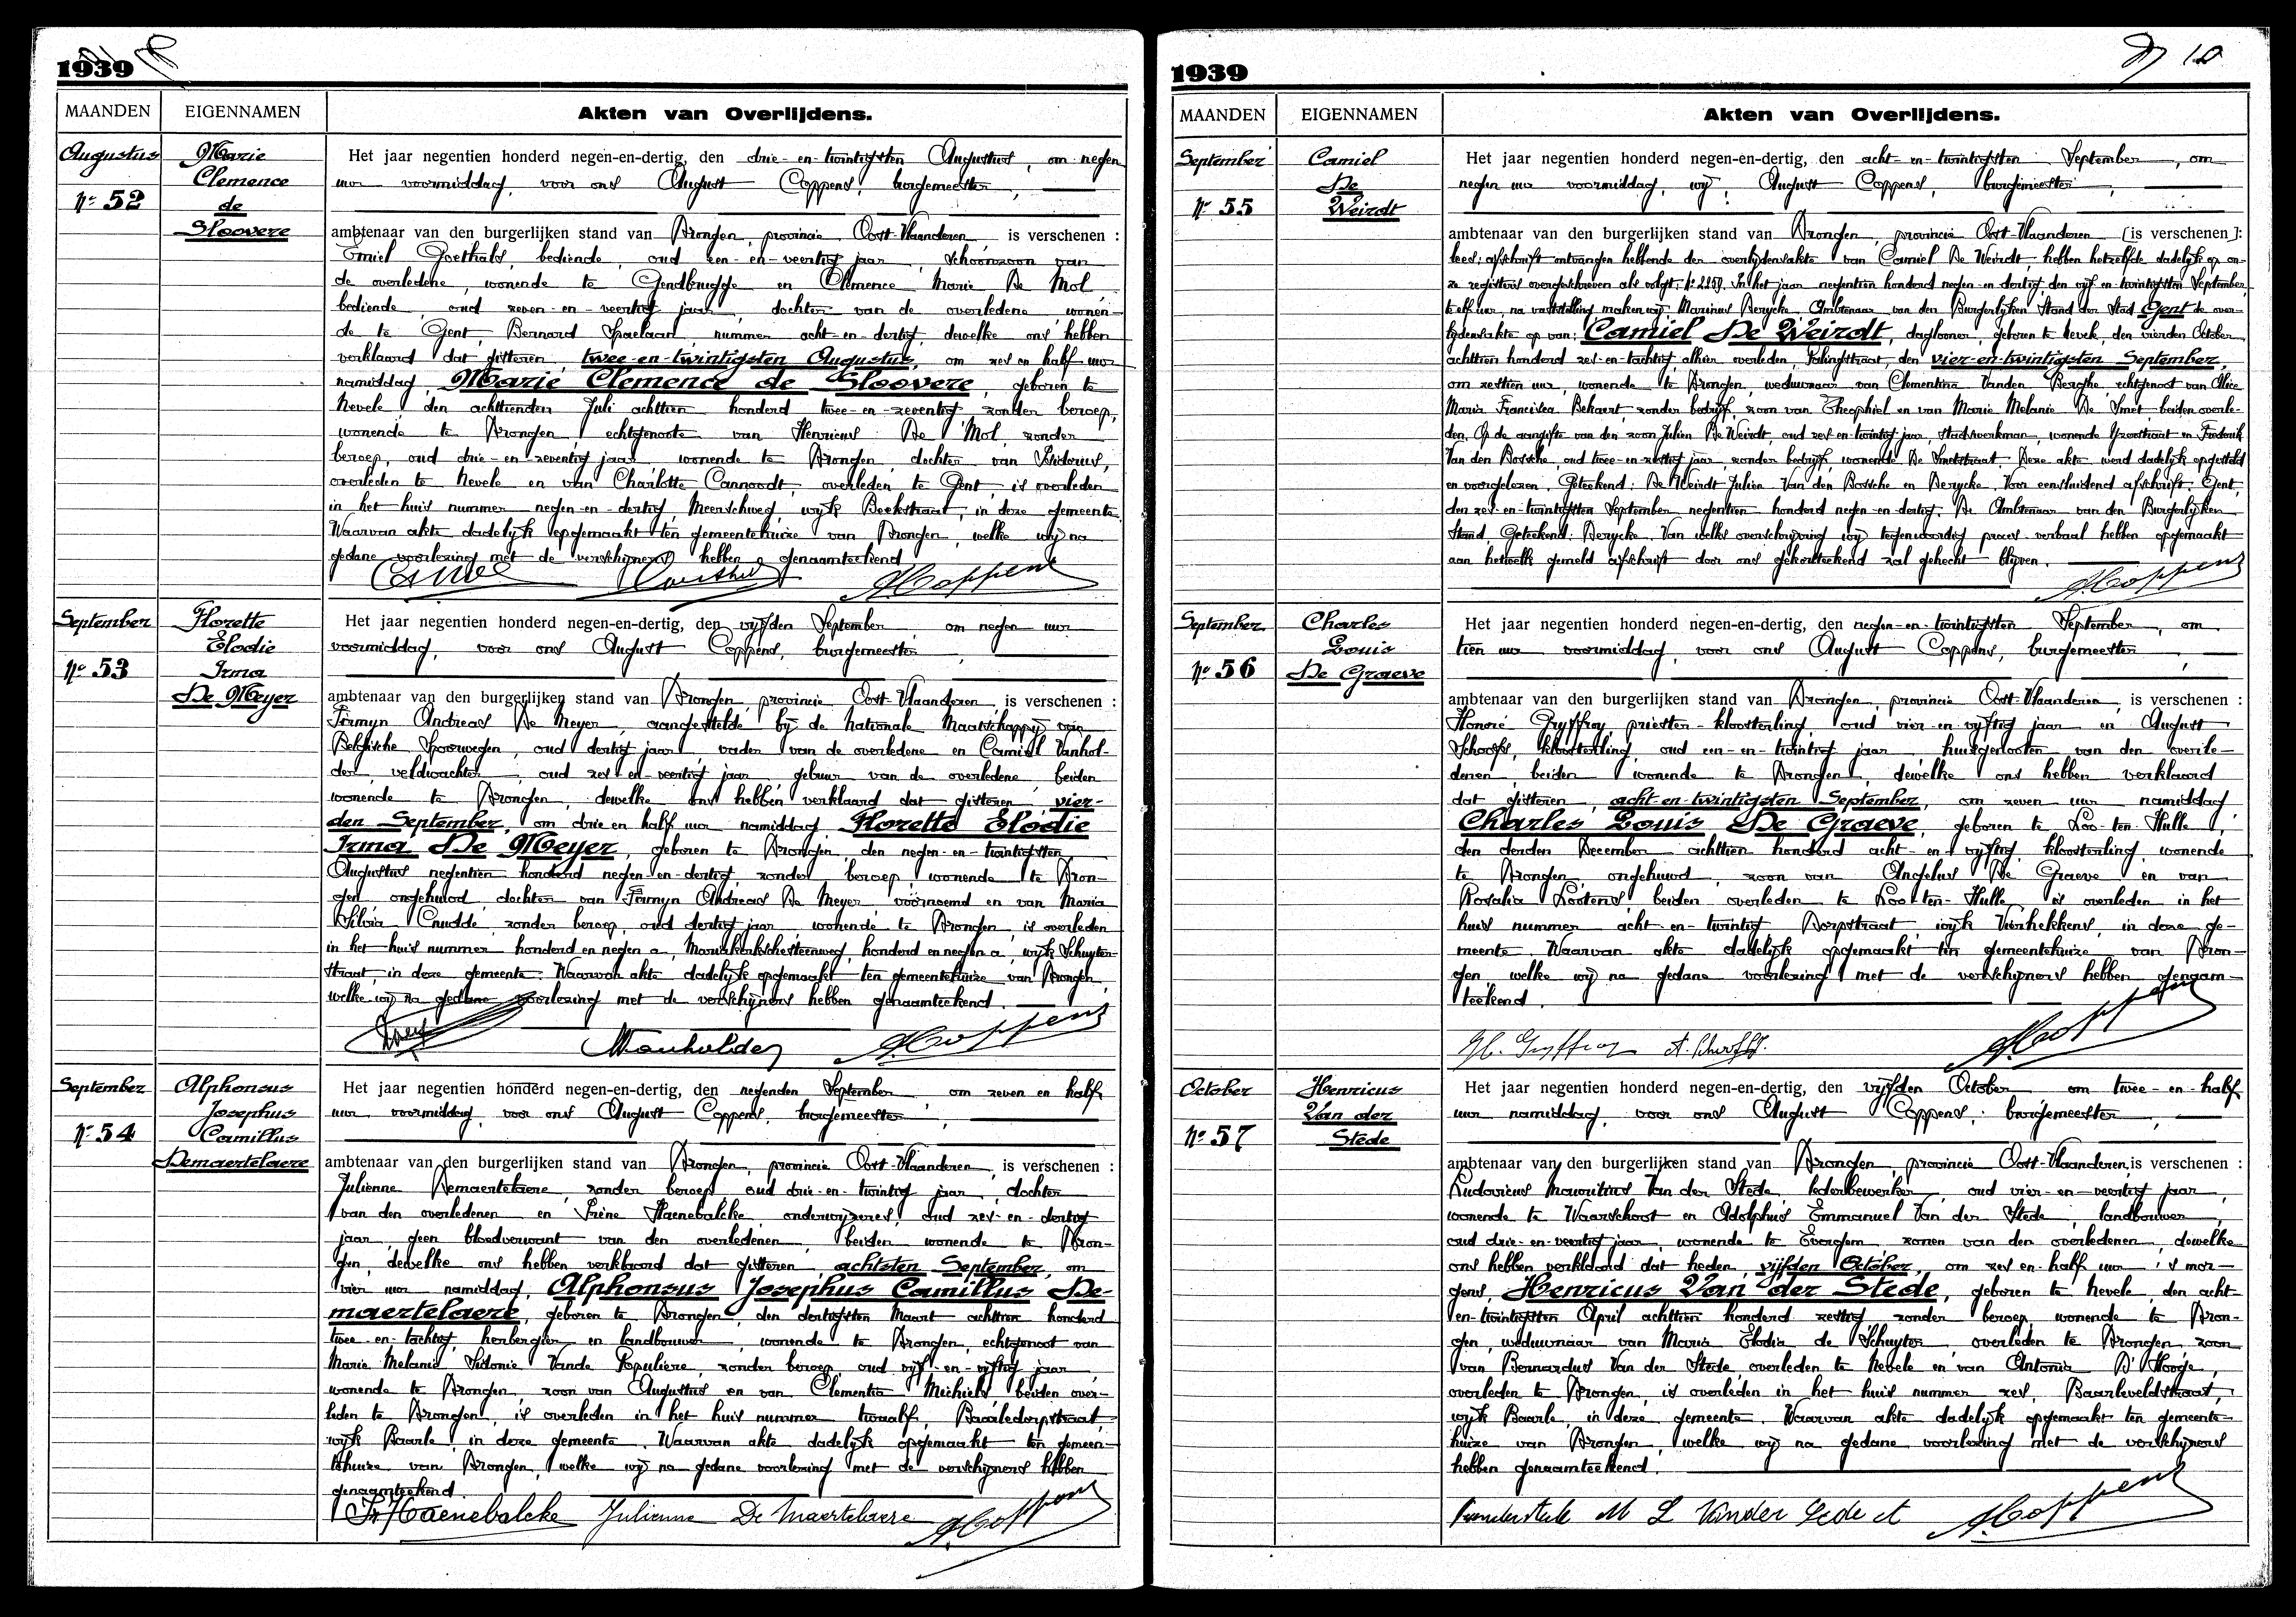 1939
MAANDEN EIGENNAMEN Akten van Overlijdens.
Augustus
Nº 52
Marie
Clemence
de
Sloovere
Het jaar negentien honderd negen-en-dertig, den drie-en-twintigsten Augustus, om negen
uur voormiddag, voor ons August Coppens, burgemeester,
ambtenaar van den burgerlijken stand van Drongen, provincie Oost-Vlaanderen, is verschenen :
Emiel Goethals, bediende, oud een-en-veertig jaar, schoonzoon van
de overledene, wonende te Gendbrugge en Clemence Marie De Mol,
bediende, oud zeven-en-veertig jaar, dochter van de overledene wonen-
de te Gent, Bernard Spaelaan, nummer acht-en-dertig, dewelke ons hebben
verklaard dat gisteren, twee-en-twintigsten Augustus, om zes en half uur
namiddag, Marie Clemence de Sloovere, geboren te
Nevele, den achttienden Juli achttien honderd twee-en-zeventig, zonder beroep,
wonende te Drongen, echtgenoote van Henricus De Mol, zonder
beroep, oud drie-en-zeventig jaar, wonende te Drongen, dochter van Isidorus,
overleden te Nevele en van Charlotte Cannoodt, overleden te Gent, is overleden
in het huis nummer negen-en-dertig, Meerschweg, wijk Beekstraat, in deze gemeente.
Waarvan akte dadelijk opgemaakt ten gemeentehuize van Drongen, welke wij na
gedane voorlezing met de verschijners hebben genaamteekend.
A. Coppens
September
Nº 53
Florette
Elodie
Irma
De Meyer
Het jaar negentien honderd negen-en-dertig, den vijfden September, om negen uur
voormiddag, voor ons August Coppens, burgemeester,
ambtenaar van den burgerlijken stand van Drongen, provincie Oost-Vlaanderen, is verschenen :
Firmyn Andreas De Meyer, aangestelde bij de Nationale Maatschappij van
Belgische Spoorwegen, oud dertig jaar, vader van de overledene en Camiel Vanhol-
der, veldwachter, oud zes-en-veertig jaar, gebuur van de overledene beiden
wonende te Drongen, dewelke ons hebben verklaard dat gisteren, vier-
den September, om drie en half uur namiddag, Florette Elodie
Irma De Meyer, geboren te Drongen, den negen-en-twintigsten
Augustus negentien honderd negen-en-dertig, zonder beroep, wonende te Dron-
gen, ongehuwd, dochter van Firmyn Andreas De Meyer voornoemd en van Maria
Silvia Cnudde, zonder beroep, oud dertig jaar, wonende te Drongen, is overleden
in het huis nummer honderd en negen a, Mariakerkschesteenweg, honderd en negen a, wijk Schuyten-
straat, in deze gemeente. Waarvan akte dadelijk opgemaakt ten gemeentehuize van Drongen,
welke wij na gedane voorlezing met de verschijners hebben genaamteekend.
Vanholder A. Coppens
September
Nº 54
Alphonsus
Josephus
Camillus
Demaertelaere
Het jaar negentien honderd negen-en-dertig, den negenden September, om zeven en half
uur voormiddag, voor ons August Coppens, burgemeester,
ambtenaar van den burgerlijken stand van Drongen, provincie Oost-Vlaanderen, is verschenen :
Julienne Demaertelaere, zonder beroep, oud drie-en-twintig jaar, dochter
van den overledenen en Irène Haenebalcke, onderwijzeres, oud zes-en-dertig
jaar, geen bloedverwant van den overledenen, beiden wonende te Dron-
gen, dewelke ons hebben verklaard dat gisteren, achtsten September, om
vier uur namiddag, Alphonsus Josephus Camillus De-
maertelaere, geboren te Drongen, den dertigsten Maart achttien honderd
twee-en-tachtig, herbergier en landbouwer, wonende te Drongen, echtgenoot van
Marie Melanie Sidonie Vande Populiere, zonder beroep, oud vijf-en-vijftig jaar,
wonende te Drongen, zoon van Augustus en van Clementia Michiels beiden over-
leden te Drongen, is overleden in het huis nummer twaalf, Baarledorpstraat,
wijk Baarle, in deze gemeente. Waarvan akte dadelijk opgemaakt ten gemeen-
tehuize van Drongen, welke wij na gedane voorlezing met de verschijners hebben
genaamteekend.
Ir Haenebalcke Julienne De Maertelaere A. Coppens
1939
10
MAANDEN EIGENNAMEN Akten van Overlijdens.
September
Nº 55
Camiel
De
Weirdt
Het jaar negentien honderd negen-en-dertig, den acht-en-twintigsten September, om
negen uur voormiddag, wij, August Coppens, burgemeester,
ambtenaar van den burgerlijken stand van Drongen, provincie Oost-Vlaanderen (is verschenen):
lees: afschrift ontvangen hebbende der overlijdensakte van Camiel De Weirdt, hebben hetzelfde dadelijk op on-
ze registers overgeschreven als volgt: Nº 2257. In het jaar negentien honderd negen-en-dertig, den vijf-en-twintigsten September,
te elf uur, na vaststelling maken wij, Marinus Derycke Ambtenaar van den Burgerlijken Stand der Stad Gent de over-
lijdensakte op van: Camiel De Weirdt, daglooner, geboren te Nevele, den vierden October
achttien honderd zes-en-tachtig, alhier overleden, Palingstraat, den vier-en-twintigsten September,
om zestien uur, wonende te Drongen, weduwnaar van Clementina Vanden Berghe, echtgenoot van Alice
Maria Francisca Bekaert, zonder bedrijf, zoon van Theophiel en van Marie Melanie De Smet beiden overle-
den. Op de aangifte van den zoon Julien De Weirdt, oud zes-en-twintig jaar, stadswerkman, wonende Yzerstraat en Frederik
Van den Bossche, oud twee-en-zestig jaar, zonder bedrijf, wonende De Smetstraat. Deze akte werd dadelijk opgesteld
en voorgelezen. Geteekend: De Weirdt Julien Van den Bossche en Derycke. Voor eensluidend afschrift. Gent,
den zes-en-twintigsten September negentien honderd negen-en-dertig. De Ambtenaar van den Burgerlijken
Stand. Geteekend: Derycke. Van welks overschrijving wij tegenwoordig proces-verbaal hebben opgemaakt
aan hetwelk gemeld afschrift door ons gekorteekend zal gehecht blijven.
A. Coppens
September
Nº 56
Charles
Louis
De Graeve
Het jaar negentien honderd negen-en-dertig, den negen-en-twintigsten September, om
tien uur voormiddag, voor ons August Coppens, burgemeester,
ambtenaar van den burgerlijken stand van Drongen, provincie Oost-Vlaanderen, is verschenen :
Honoré Gryffroy priester-kloosterling, oud vier-en-vijftig jaar en August
Schoofs, kloosterling, oud een-en-twintig jaar, huisgenooten van den overle-
denen, beiden wonende te Drongen, dewelke ons hebben verklaard
dat gisteren, acht-en-twintigsten September, om zeven uur namiddag
Charles Louis De Graeve, geboren te Loo-ten-Hulle,
den derden December achttien honderd acht-en-vijftig, kloosterling, wonende
te Drongen, ongehuwd, zoon van Angelus De Graeve en van
Rosalia Lootens beiden overleden te Loo-ten-Hulle is overleden in het
huis nummer acht-en-twintig Dorpstraat, wijk Varnhekkens, in deze ge-
meente. Waarvan akte dadelijk opgemaakt ten gemeentehuize van Dron-
gen welke wij na gedane voorlezing met de verschijners hebben genaam-
teekend.
H. Gryffroy A. Schoofs. A. Coppens
October
Nº 57
Henricus
Van der
Stede
Het jaar negentien honderd negen-en-dertig, den vijfden October om twee-en-half
uur namiddag, voor ons August Coppens, burgemeester,
ambtenaar van den burgerlijken stand van Drongen, provincie Oost-Vlaanderen, is verschenen :
Ludovicus Mauritius Van der Stede, lederbewerker, oud vier-en-veertig jaar,
wonende te Waarschoot en Adolphus Emmanuel Van der Stede, landbouwer,
oud drie-en-veertig jaar, wonende te Evergem, zonen van den overledenen, dewelke
ons hebben verklaard dat heden, vijfden October, om zes en half uur 's mor-
gens, Henricus Van der Stede, geboren te Nevele, den acht-
en-twintigsten April achttien honderd zestig, zonder beroep, wonende te Dron-
gen, weduwnaar van Maria Elodia de Schuyter, overleden te Drongen, zoon
van Bernardus Van der Stede overleden te Nevele en van Antonia D'Hooge,
overleden te Drongen, is overleden in het huis nummer zes, Baarleveldstraat,
wijk Baarle, in deze gemeente. Waarvan akte dadelijk opgemaakt ten gemeente-
huize van Drongen, welke wij na gedane voorlezing met de verschijners
hebben genaamteekend.
Vanderstede M L Vander Stede A. Coppens